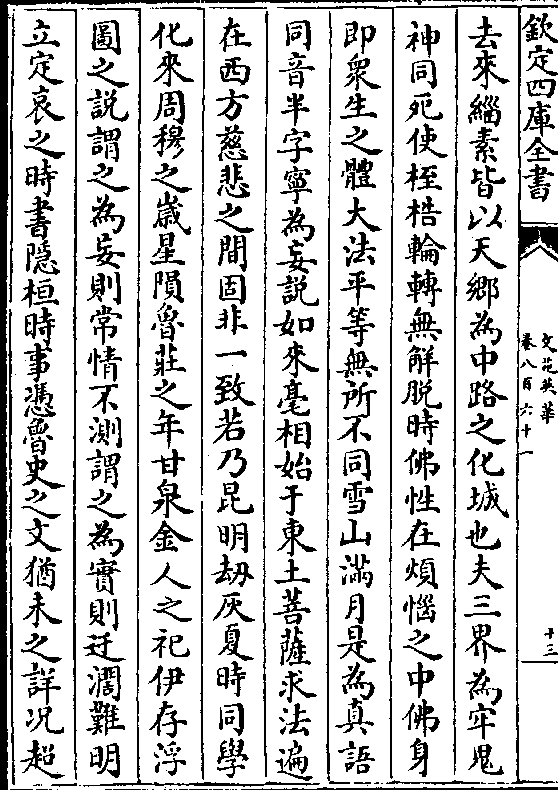 欽定四庫全書
文苑英華
卷八百六十一
十三
去來緇素皆以天鄉為中路之化城也夫三界為牢鬼
神同死使桎梏輪轉無解脱時佛性在煩惱之中佛身
即衆生之體大法平等無所不同雪山滿月是為真語
同音半字寧為妄説如來毫相始于東土菩薩求法遍
在西方慈悲之間固非一致若乃昆明劫灰夏時同學
化來周穆之歲星隕魯莊之年甘泉金人之祀伊存浮
圖之説謂之為妄則常情不測謂之為實則迂濶難明
立定哀之時書隱桓時事憑魯史之文猶未之詳況超